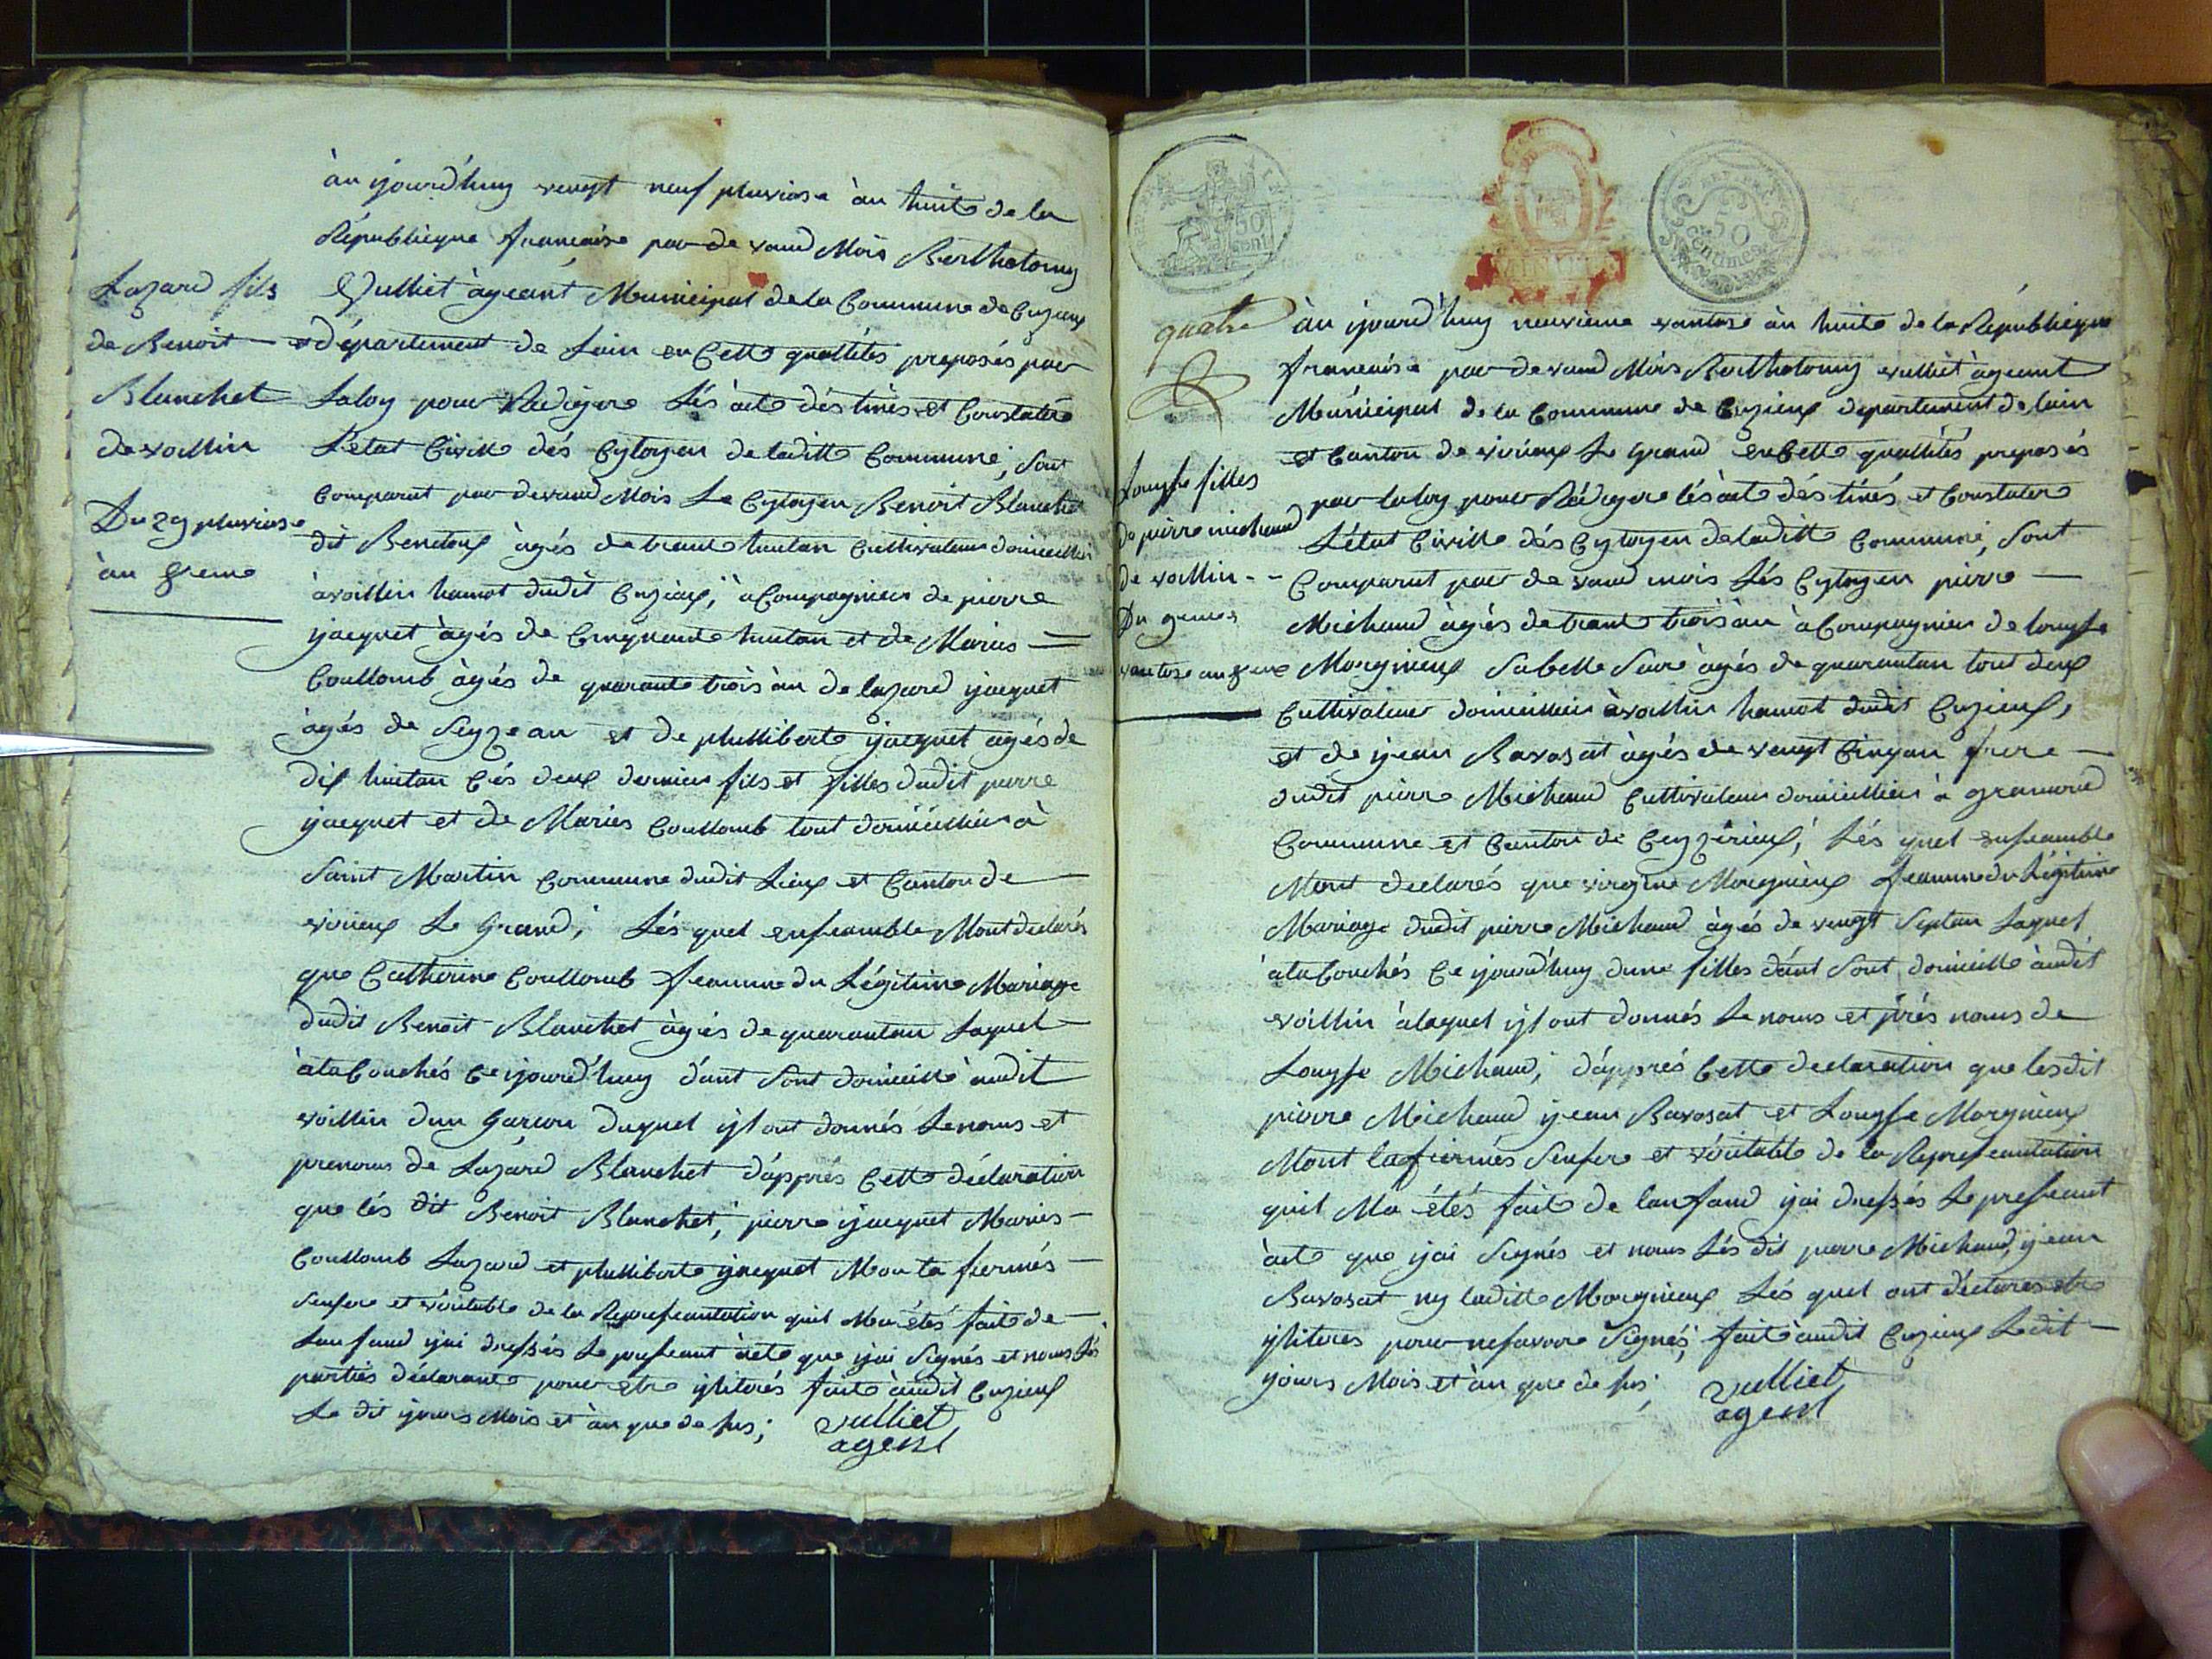 Lazard fils
de Benoit
Blanchet
de voillin
Du 29 pluviose
àn 8eme
àu ijourd'huy vengt neuf pluviose àn huite de la
République francaise par de vand Mois Berthelomy
Vulliet àgeant Municipal de la Commune de Cuzieux
département de Lain en Cette quallités preposés par
Laloy pour Rediger Lés àcte déstinés et Constater
L'état Civille dés Cytoyen de laditte Commune, Sont
Comparut par devand Mois Le Cytoyen Benoit Blanchet
dit Bendoux àgés de trante huitan Cultivateur domicillier
à voillin hamot dudit Cuzieux, àCompagnier de pierre
ijacquet àgés de Cinquante huitan et de Maries
Coullomb àgés de quarante trois àn de lazard ijacquet
àgés de Seyze an et de phillberte ijacquet agés de
dix huitan Cés deux dernier fils et filles dudit pierre
ijacquet et de Maries Coullomb tout domicillier à
Saint Martin Commune dudit Lieux et Canton de
virieux Le Grand; Lés quel enseamble Mont declarés
que Catherine Coullomb feamme du Légitime Mariage
dudit Benoit Blanchet àgés de quarantan Laquel
àlaCouchés Ce ijourd'huy dant Sont domicille àudit
voillin dun Garcon duquel ijl ont donnés Lenoms et
prenoms de Lazard Blanchet dàpprés Cette déclaration
que lés dit Benoit Blanchet, pierre ijacquet Maries
Coullomb Lazard et phillberte ijacquet Mon ta fiermés
Sensere et véritable de la Represeantation quil Ma étés faite de
Lanfand ijai dressés Le preseant àcte que ijai Signés et nomis Lés
partiés déclarante pour etre ijliterés faite àudit Cuzieux
Le dit ijours Mois et àn que de sus; vulliet
agent
50
cent
50
centimes
quatre
Louyse filles
de pierre michaud
de voillin
Du 9eme
vantose an 8eme
àu ijourd'huy neuvieme vantose àn huite de la République
francaise par devand Mois Berthelomy vulliet àgeant
Municipal de la Commune de Cuzieux departement de lain
et Canton de virieux Le Grand en Cette quallités preposés
par laloy pour Rédiger lés àcte déstinés et Constater
L'état Civille dés Cytoyen de laditte Commune, Sont
Comparut par de vand mois Lés Cytoyen pierre
Michaud àgés de trante trois àn àCompagnier de louyse
Morgnieux Sabelle Sure àgés de quarantan tout deux
Cultivateur domicillier àvoillin hamot dudit Cuzieux,
et de ijean Bavosat àgés de vengt Cinqan frere
dudit pierre Michaud Cultivateur domicillier à
Commune et Canton de Ceyzérieux, Lés quel enseamble
Mont declarés que virgine Morgnieux feamme du Légitime
Mariage dudit pierre Michaud àgés de vengt Septan Laquel
àlaCouchés Ce ijourd'huy dune filles dant Sont domicille àudit
voillin àlaquel ijl ont donnés Le noms et prés noms de
Louyse Michaud, dàpprés Cette declaration que lesdit
pierre Michaud ijean Bavosat et Louyse Morgnieux
Mont lafiermés Sensere et véritable de la Represeantation
quil Ma étés faite de lanfand ijai dressés Le preseant
àcte que ijai Signés et nomis Lés dit pierre Michaud, ijean
Bavosat ny laditte Morgnieux Lés quel ont déclares etre
ijliteres pour nesavoire Signés; faite àudit Cuzieux Ledit
ijours Mois et àn que de sus; vulliet
agent